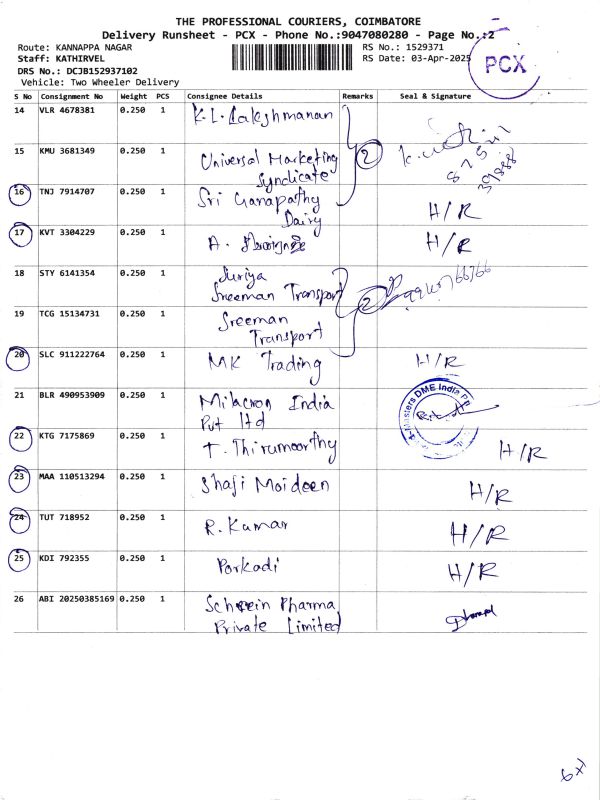 THE PROFESSIONAL COURIERS, COIMBATORE
Delivery Runsheet - PCX - Phone No.:9047080280 - Page No.:2
Route: KANNAPPA NAGAR RS No.: 1529371
Staff: KATHIRVEL RS Date: 03-Apr-2025
DRS No.: DCJB152937102
Vehicle: Two Wheeler Delivery
PCX
S No Consignment No Weight PCS Consignee Details Remarks Seal & Signature
14 VLR 4678381 0.250 1 K.L. Lakshmanan
15 KMU 3681349 0.250 1 Universal Marketing
Syndicate
2
16 TNJ 7914707 0.250 1 Sri Ganapathy
Dairy
H/R
17 KVT 3304229 0.250 1 A. H/R
18 STY 6141354 0.250 1 Suriya
Sreeman Transport
2
19 TCG 15134731 0.250 1 Sreeman
Transport
20 SLC 911222764 0.250 1 MK Trading H/R
21 BLR 490953909 0.250 1 Milacron India
Pvt ltd
DME India
22 KTG 7175869 0.250 1 T. Thirumoorthy H/R
23 MAA 110513294 0.250 1 Shaji Moideen H/R
24 TUT 718952 0.250 1 R. Kumar H/R
25 KDI 792355 0.250 1 Porkodi H/R
26 ABI 20250385169 0.250 1 Pharma
Private Limited